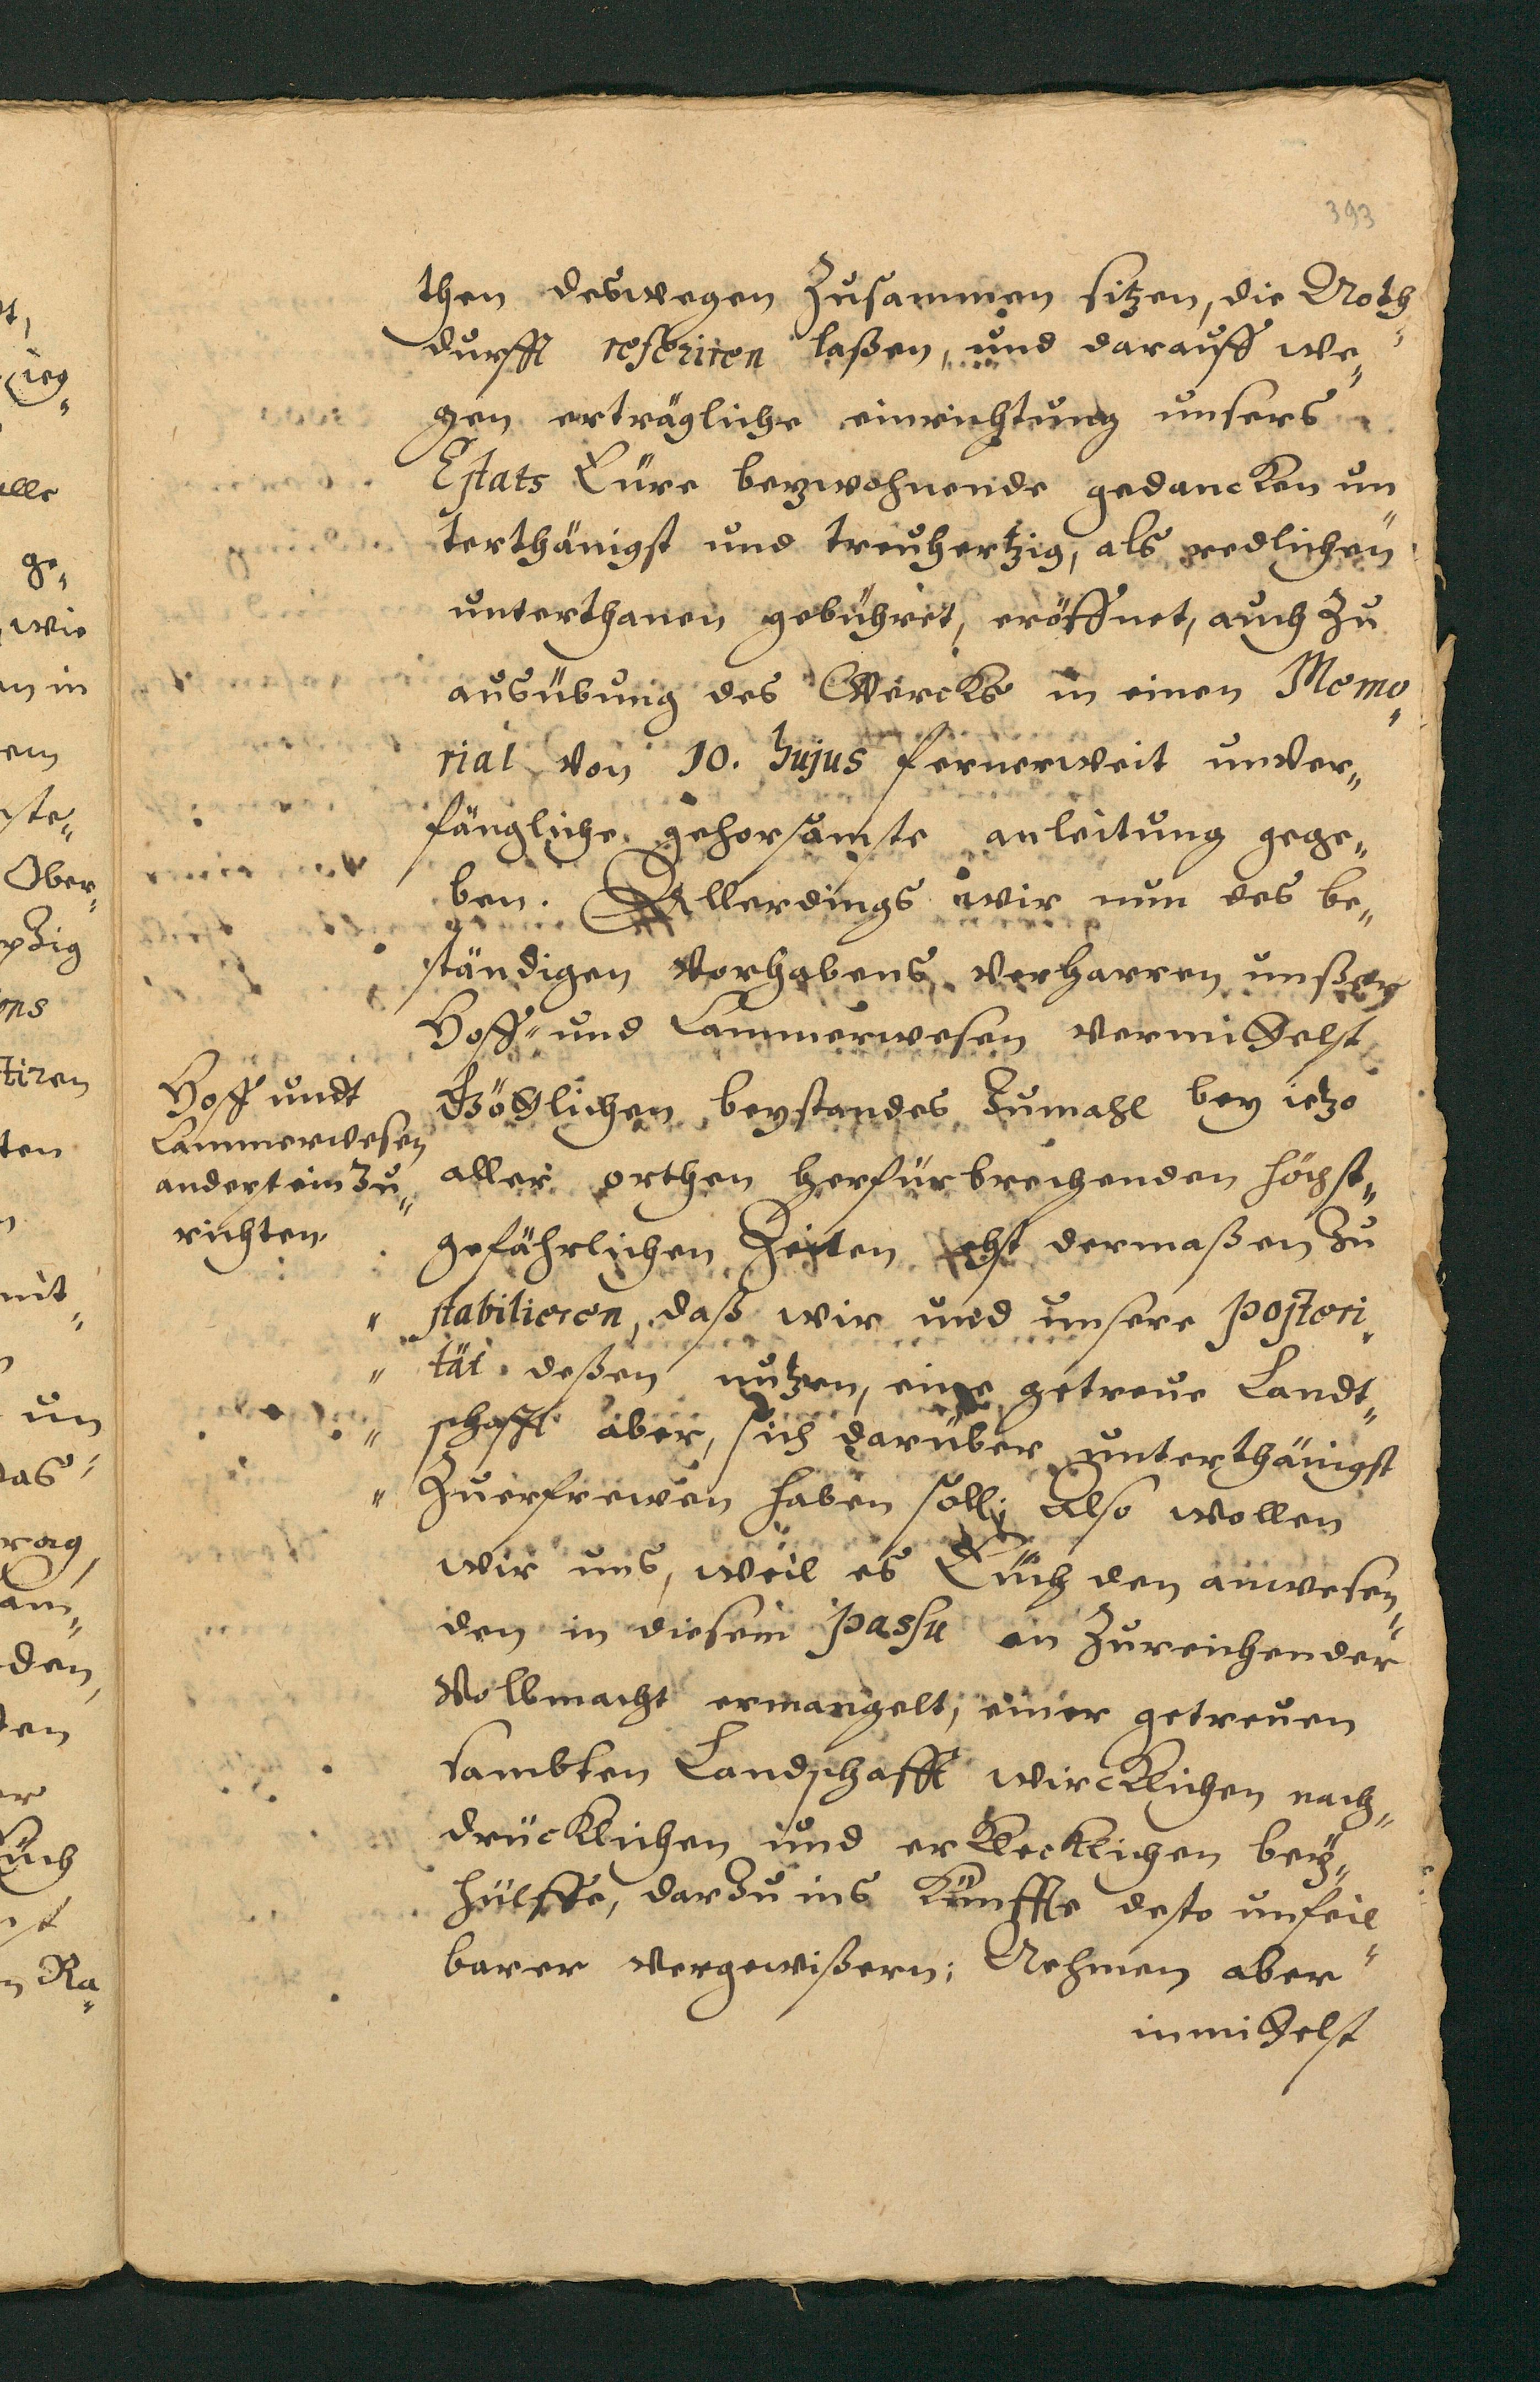 393
then deswegen Zusammen sitzen, die Noth-
durfft referiren laßen, und darauff we-
gen erträgliche einrichtung unsers
Estats Eüre beywohnende gedancken un-
terthänigst und treuhertzig, als redlichen
unterthanen gebühret, eröffnet, auch Zu
ausübung des Wercks in einen Memo-
rial von 10. hujus fernerweit unver-
fängliche gehorsamste anleitung gege-
ben. Allerdings wir nun des be-
ständigen Vorhabens verharren unßer
Hoff- und Cammerwesen vermittelst
Göttlichen beystandes Zumahl bey ietzo
aller orthen herfürbrechenden höchst-
gefährlichen Zeiten dermaßen Zu
stabilieren, daß wir und unsere posteri-
tät deßen nutzen, eine getreue Landt-
schafft aber, sich darüber unterthänigst
Zuerfrewen haben soll; Also wollen
wir uns, weil es Eüch den anwesen-
den in diesem passu an Zureichender
Vollmacht ermangelt, einer getreuen
sambten Landschafft wircklichen nach-
drücklichen und erklecklichen bey-
hülffe, darzu ins künfftte desto unfeil-
barer vergewißern; Nehmen aber
inmittelst
Hoff undt
Cammerwesen
anderst ein Zu-
richten.